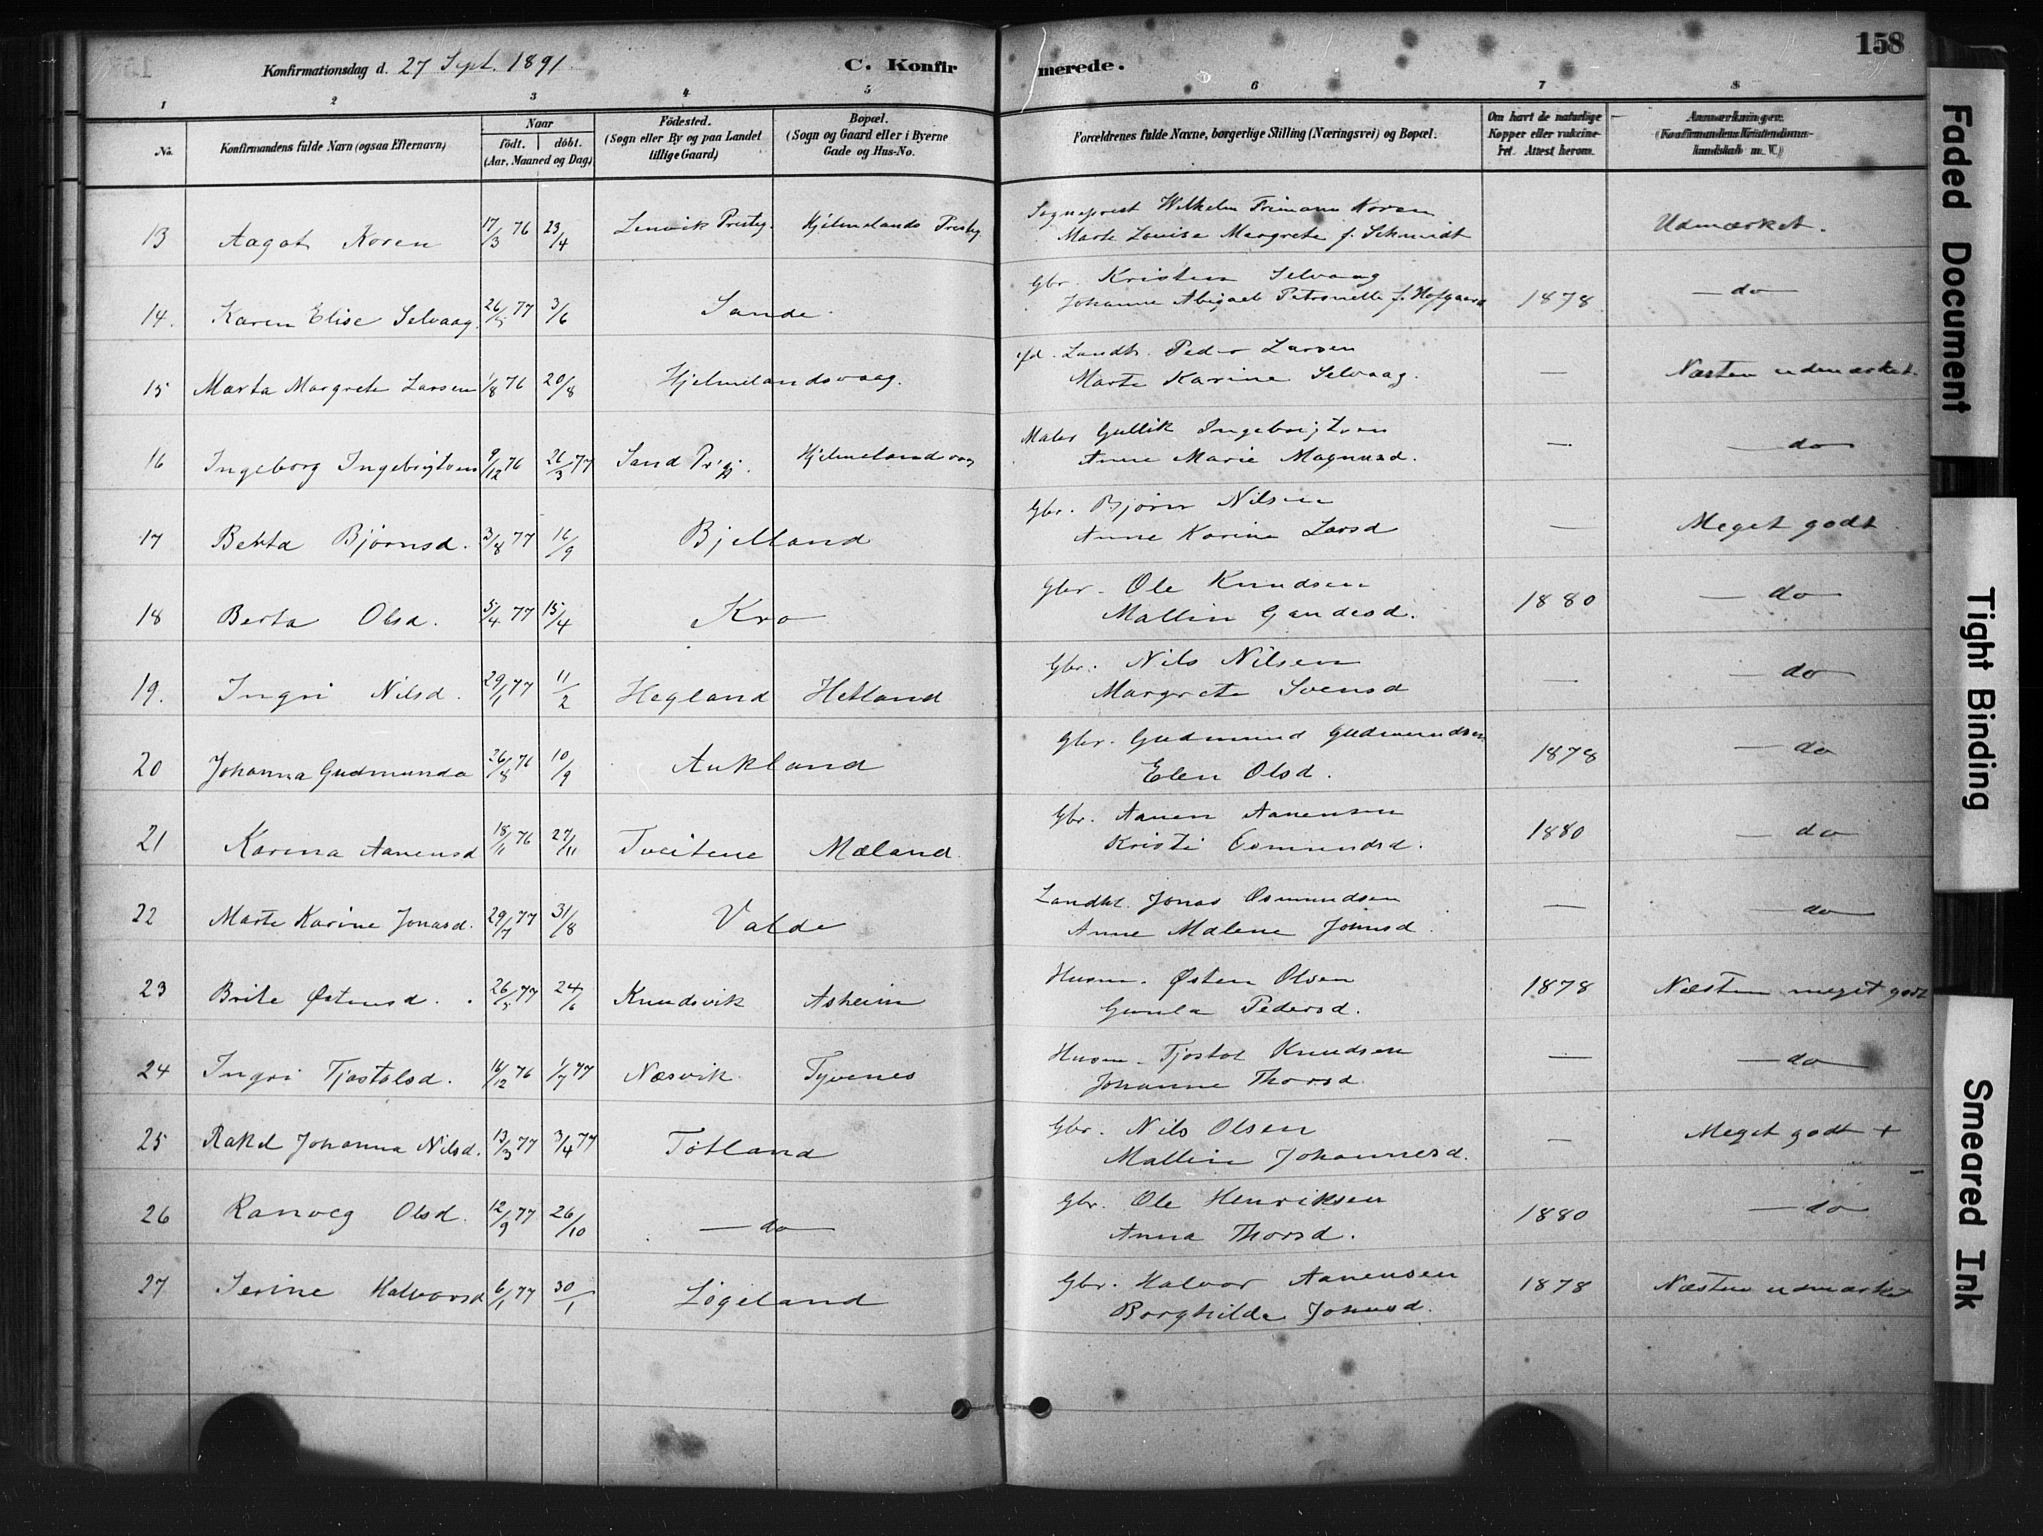 158
Konfirmationsdag d. 27 Sept. 1891.
C. Konfirmerede.
1 2 3 4 5 6 7 8
No.
Konfirmandens fulde Navn (ogsaa Efternavn)
Naar
født. døbt.
(Aar, Maaned og Dag)
Fødested.
(Sogn eller By og paa Landet
tillige Gaard)
Bopæl.
(Sogn og Gaard eller i Byerne
Gade og Hus-No.
Forældrenes fulde Navne, borgerlige Stilling (Næringsvei) og Bopæl.
Om havt de naturlige
Kopper eller vakcine-
ret. Attest herom.
Anmærkninger.
(Konfirmandens Kristendoms-
kundskab m. V.)
13 Aagot Koren 17/3 76 23/4 Lenvik Prestg. Hjelmelands Prestg
Sogneprest Wilhelm Frimann Koren
Marte Lovise Margrete f. Schmidt
Udmærket.
14. Karen Elise Selvaag. 26/5 77 3/6 Sande.
Gbr. Kristen Selvaag
Johanne Abigael Petronelle f. Hofgaard 1878 — do —
15 Marta Margrete Larsen 1/8 76 20/8 Hjelmelandsvaag.
Landh. Peder Larsen
Marte Karine Selvaag. — Næsten udmærket.
16 Ingeborg Ingebrigtsen 9/12 76 26/3 77 Sand Hjelmelandsvaag
Maler Gullik Ingebrigtsen
Anne Marie Magnusd. — — do
17 Berta Bjørnsd. 2/8 77 16/9 Bjelland
Gbr. Bjørn Nilsen
Anne Karine Larsd — Meget godt
18 Berta Olsd. 5/4 77 15/4 Kro
Gbr. Ole Knudsen
Mallin Gaudesd. 1880 — do —
19. Ingri Nilsd. 29/1 77 11/2 Hegland Hetland
Gbr. Nils Nilsen
Margrete Svensd — — do
20 Johanna Gudmunds 26/8 76 10/9 Aukland
Gbr. Gudmund Gudmundsen
Elen Olsd. 1878 — do
21 Karina Aanensd 18/11 76 27/11 Tveitene Mæland.
Gbr. Aanen Aanensen
Kristi Osmundsd. 1880 — do
22 Marte Karine Jonasd. 29/7 77 31/8 Valde
Landhl. Jonas Osmundsen
Anne Malene Johnsd. — — do —
23 Brite Østensd. 26/5 77 24/6 Knudsvik Asheim
Husm. Østen Olsen
Gunla Pedersd. 1878 Næsten meget godt
24 Ingri Tjostolsd. 16/12 76 1/7 77 Næsvik. Tyvenes
Husm. Tjostol Knudsen
Johanne Thorsd — — do —
25 Rakel Johanna Nilsd. 13/3 77 3/4 77 Tøtland
Gbr. Nils Olsen
Mallin Johannesd. — Meget godt +
26 Ranveg Olsd. 12/9 77 26/10 — do —
Gbr. Ole Henriksen
Anna Thorsd. 1880 — do
27 Serine Halvorsd 6/1 77 30/1 Løgeland
Gbr. Halvor Aanensen
Borghilde Johnsd. 1878 Næsten udmærket
Faded Document
Tight Binding
Smeared Ink